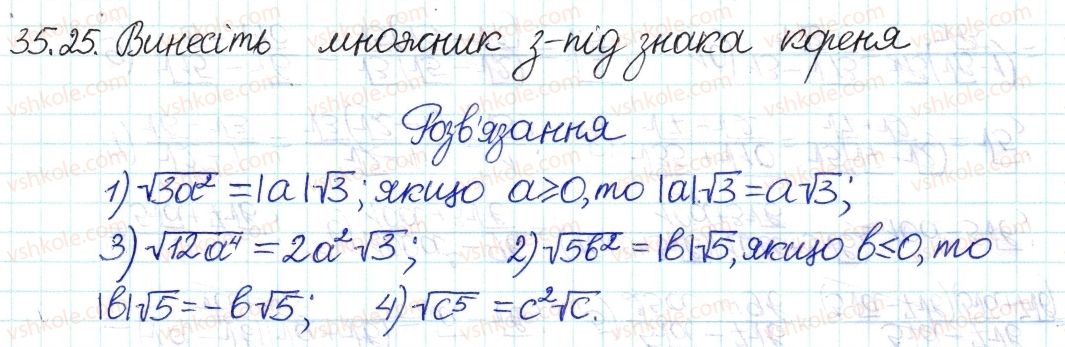 35.25. Винесіть множник з-під знака кореня
Розв'язання
1) √3a² = |a|√3; якщо a≥0, то |a|√3 = a√3;
3) √12a⁴ = 2a²√3; 2) √5b² = |b|√5, якщо b≤0, то
|b|√5 = -b√5; 4) √c⁵ = c²√c.